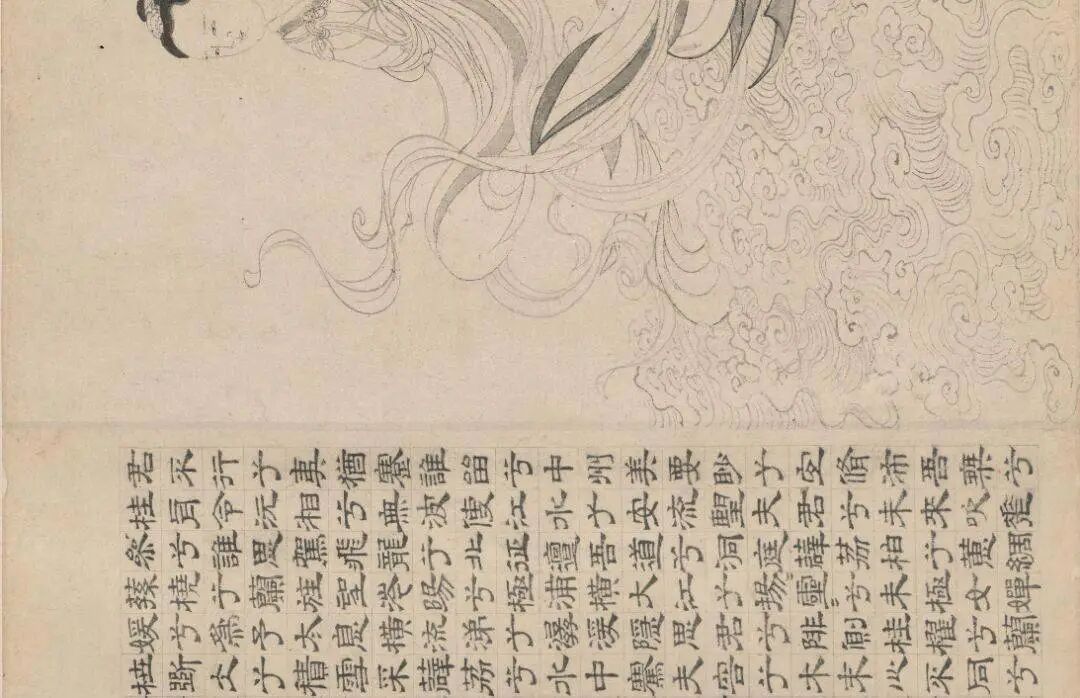 君不行兮夷猶蹇誰留兮中州美要眇兮宜脩沛吾乘兮
桂舟令沅相兮無波使江水兮安流望夫君兮未來吹參
差兮誰思駕飛龍兮北征邅吾道兮洞庭薜荔柏兮蕙綢
蓀橈兮蘭旌望涔陽兮極浦橫大江兮揚靈兮未極女嬋
媛兮為予太息橫流涕兮潺湲隱思君兮陫側桂櫂兮蘭
枻斲冰兮積雪采薜荔兮水中搴夫容兮木末心不同兮